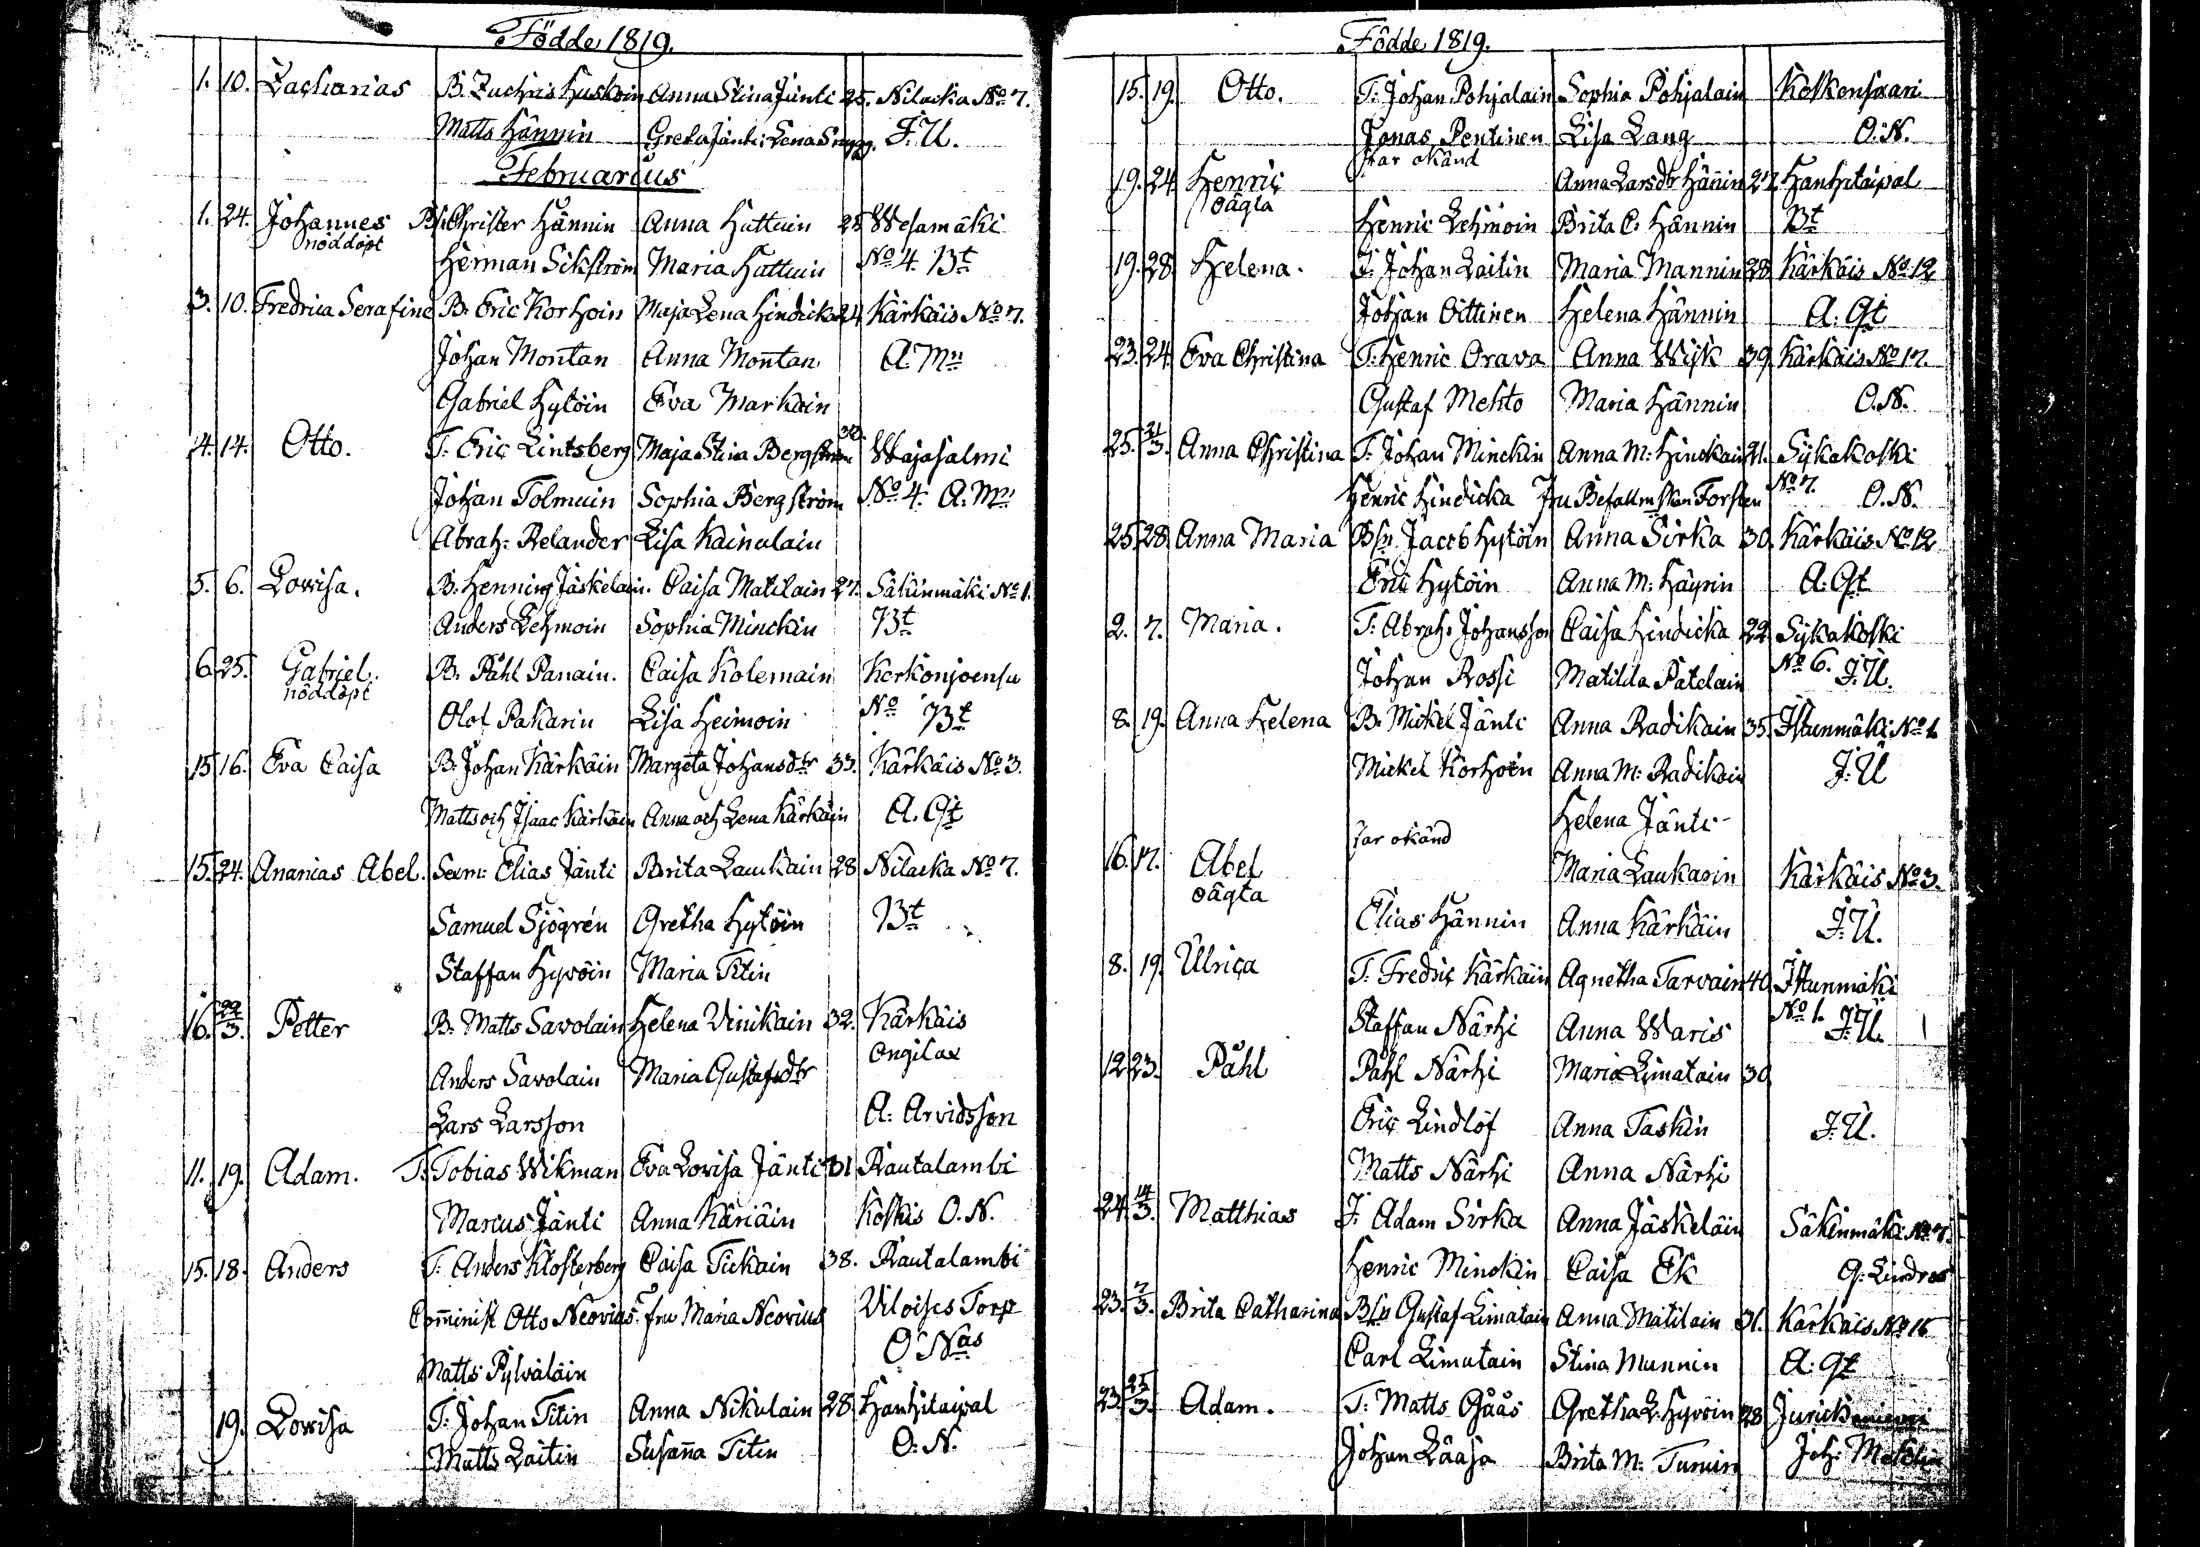 Födde 1819.
1. 10. Zacharias B. Zachris Huskoin Anna Stina Jänti 25. Nilacka No 7.
Matts Hännin Greta Jänti: Lena S J. U.
Februarius
1. 24. Johannes Bs: Christer Hännin Anna Hattuin 25 Wesamäki
nöddöpt
Herman Sikström Maria Hattuin No 4. Bt
3. 10. Fredrica Serafine B. Eric Korhoin Maja Lena Hindicka 24 Kärkäis No 7.
Johan Montan Anna Montan A: Mn
Gabriel Hytöin Eva Markain
4. 14. Otto. T. Eric Lintsberg Maja Stina Bergström 30 Wajasalmi
Johan Tolmuin Sophia Bergström No 4. A. Mn
Abrah: Relander Lisa Kainulain
5. 6. Lowisa. B. Henning Jäskelain. Caisa Matilain 27. Säkinmäki No 1.
Anders Lehmoin Sophia Minckin Bt
6. 25. Gabriel. B. Påhl Panain. Caisa Kolemain Korkonjoensu
nöddöpt
Olof Pakarin Lisa Heimoin No Bt
15 16. Eva Caisa B. Johan Kärkäin Margeta Johansdtr 33. Kärkäis No 3.
Matts och Isaac Kärkäin Anna och Lena Kärkäin A. Gt
15. 24. Ananias Abel. Sexm: Elias Jänti Brita Laukain 28 Nilacka No 7.
Samuel Sjögrén Gretha Hytöin Bt
Staffan Hyvöin Maria Titin
16. 22/3. Petter B. Matts Savolain Helena Vinikain 32. Kärkäis
Anders Savolain Maria Gustafsdtr Ongilax
Lars Larsson A: Arvidsson
11. 19. Adam. T: Tobias Wikman Eva Lovisa Jänti 31 Rautalambi
Marcus Jänti Anna Käriäin Koskis O. N.
15. 18. Anders T. Anders Klosterberg Caisa Tickain 38. Rautalambi
Comminist Otto Neovius fru Maria Neovius Viloises Torp
O Nas
Matts Pylväläin
19. Lowisa T: Johan Titin Anna Nikulain 28 Hanhitaipal
Matts Laitin Susanna Titin O: N.
Födde 1819.
15. 19. Otto. T: Johan Pohjalain Sophia Pohjalain Kolkensaari
Jonas Pentinen Lisa Lang O: N.
19. 24 Henric far okänd Anna Larsdtr Hännin 27. Hanhitaipal
oägta
Henric Lehmoin Brita C. Hännin Bt
19. 28. Helena. J: Johan Laitin Maria Mannin 28. Kärkäis No 12
Johan Oittinen Helena Hännin A: Gt
23. 24. Eva Christina T: Henric Orava Anna Wijk 39. Kärkäis No 17.
Gustaf Mehto Maria Hännin O. N.
25. 21/3. Anna Christina T: Johan Minckin Anna M: Hinckain 21. Sykakoski
Henric Hindicka Fru Befallnsman Forsten No 7. O. N.
25 28. Anna Maria Bsn Jacob Hytöin Anna Sirka 30. Kärkäis No 12
Eric Hytöin Anna M: Häyrin A: Gt
2. 7. Maria. T: Abrah: Johansson Caisa Hindicka 22 Sykakoski
Johan Rossi Matilda Patelain No 6. J: U.
8. 19. Anna Helena B. Mickel Jänti Anna Radikain 35. Istunmäki No 1
Mickel Korhoin Anna M: Radikain J: U
Helena Jänti
16. 17. Abel far okänd Maria Laukarin Kärkäis No 3.
oägta
Elias Hännin Anna Kärkäin J: U.
8. 19. Ulrica T: Fredric Kärkäin Agnetha Tarvain 40. Istunmäki
Staffan Närhi Anna Waris No 1. J: U.
12 23. Påhl Påhl Närhi Maria Limatain 30
Eric Lindlöf Anna Taskin J: U.
Matts Närhi Anna Närhi
24. 14/3. Matthias J: Adam Sirka Anna Jäskeläin Säkinmäki No 7.
Henric Minckin Caisa Ek G: Lindros
23. 7/3. Brita Catharina Bsn Gustaf Limatain Anna Matilain 31. Kärkäis No 15
Carl Limatain Stina Mannin A: Gt
23. 25/3. Adam. T: Matts Gåås Gretha L. Hyvöin 28
Johan Lääsa Brita M: Turuin Joh: Meklin